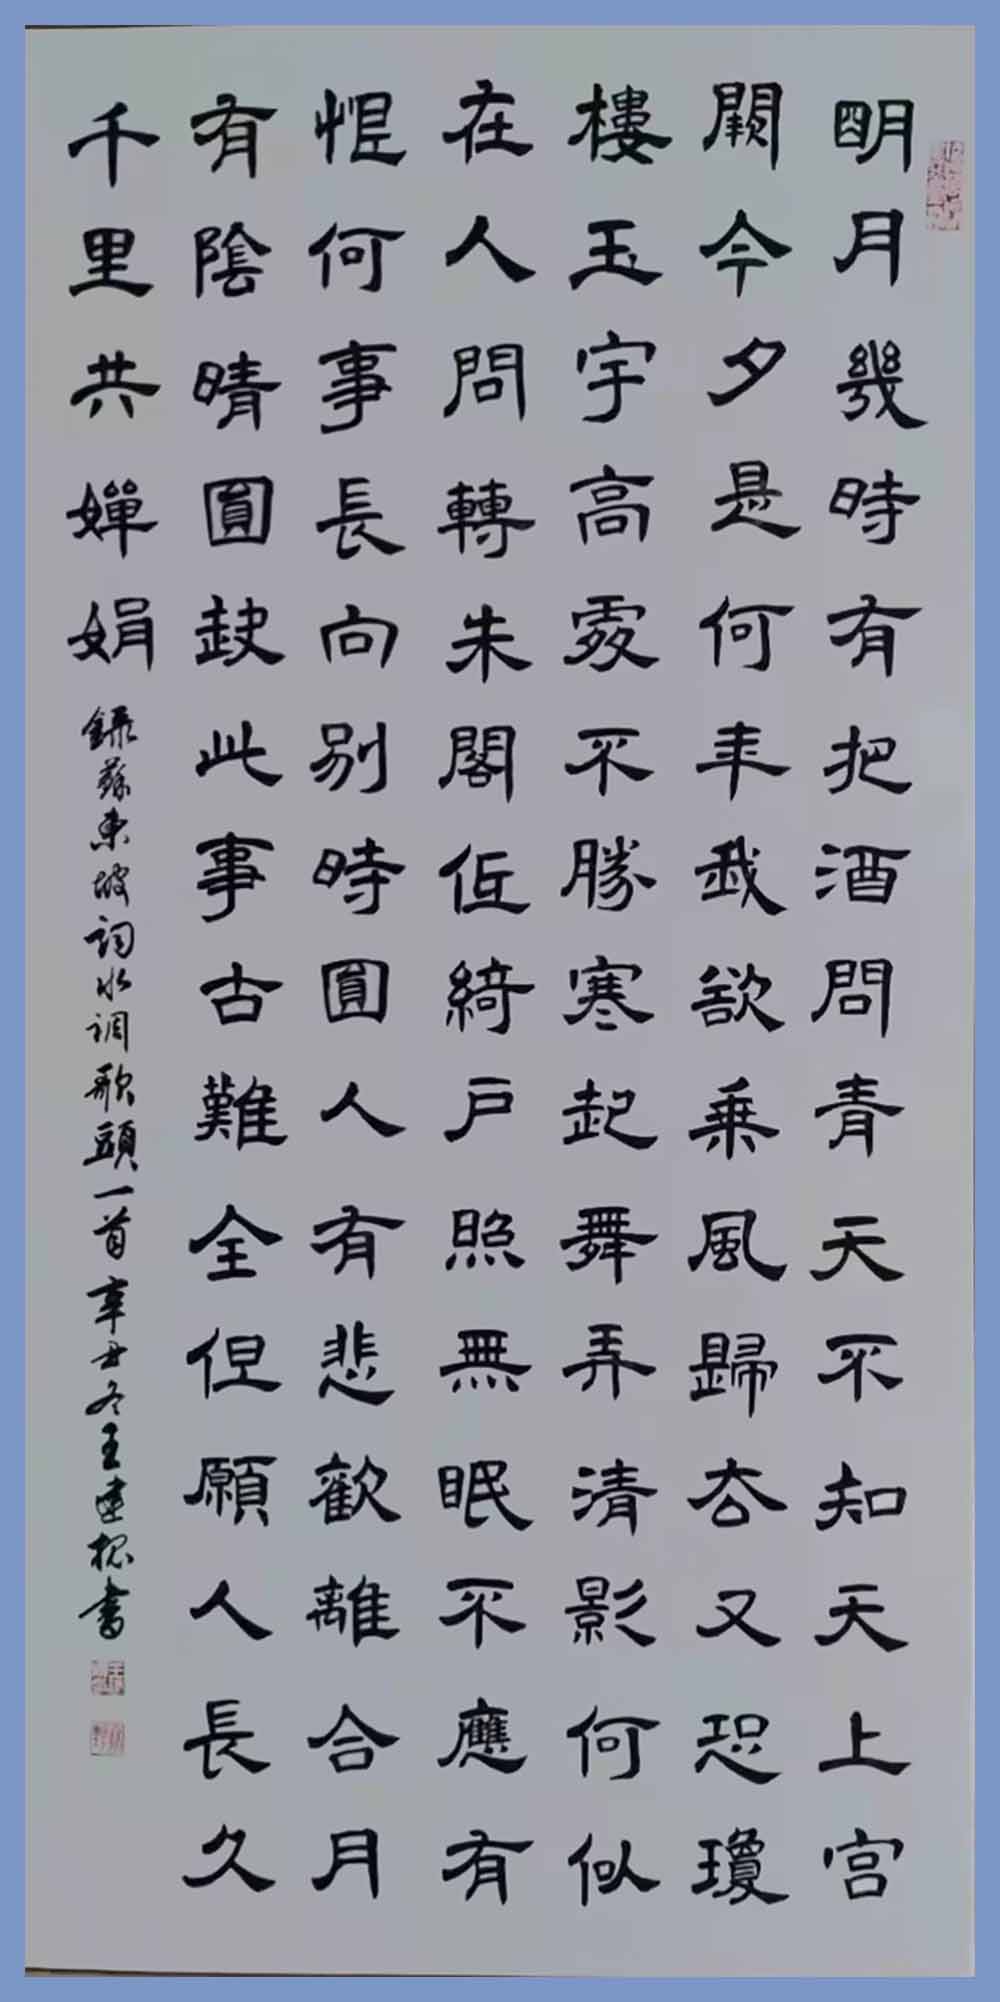 明月幾時有把酒問青天不知天上宫
闕今夕是何年我欲乘風歸去又恐瓊
樓玉宇高處不勝寒起舞弄清影何似
在人間轉朱閣低綺户照無眠不應有
恨何事長向别時圓人有悲歡離合月
有陰晴圓缺此事古難全但願人長久
千里共嬋娟
録蘇東坡詞水调歌頭一首辛丑冬王建書